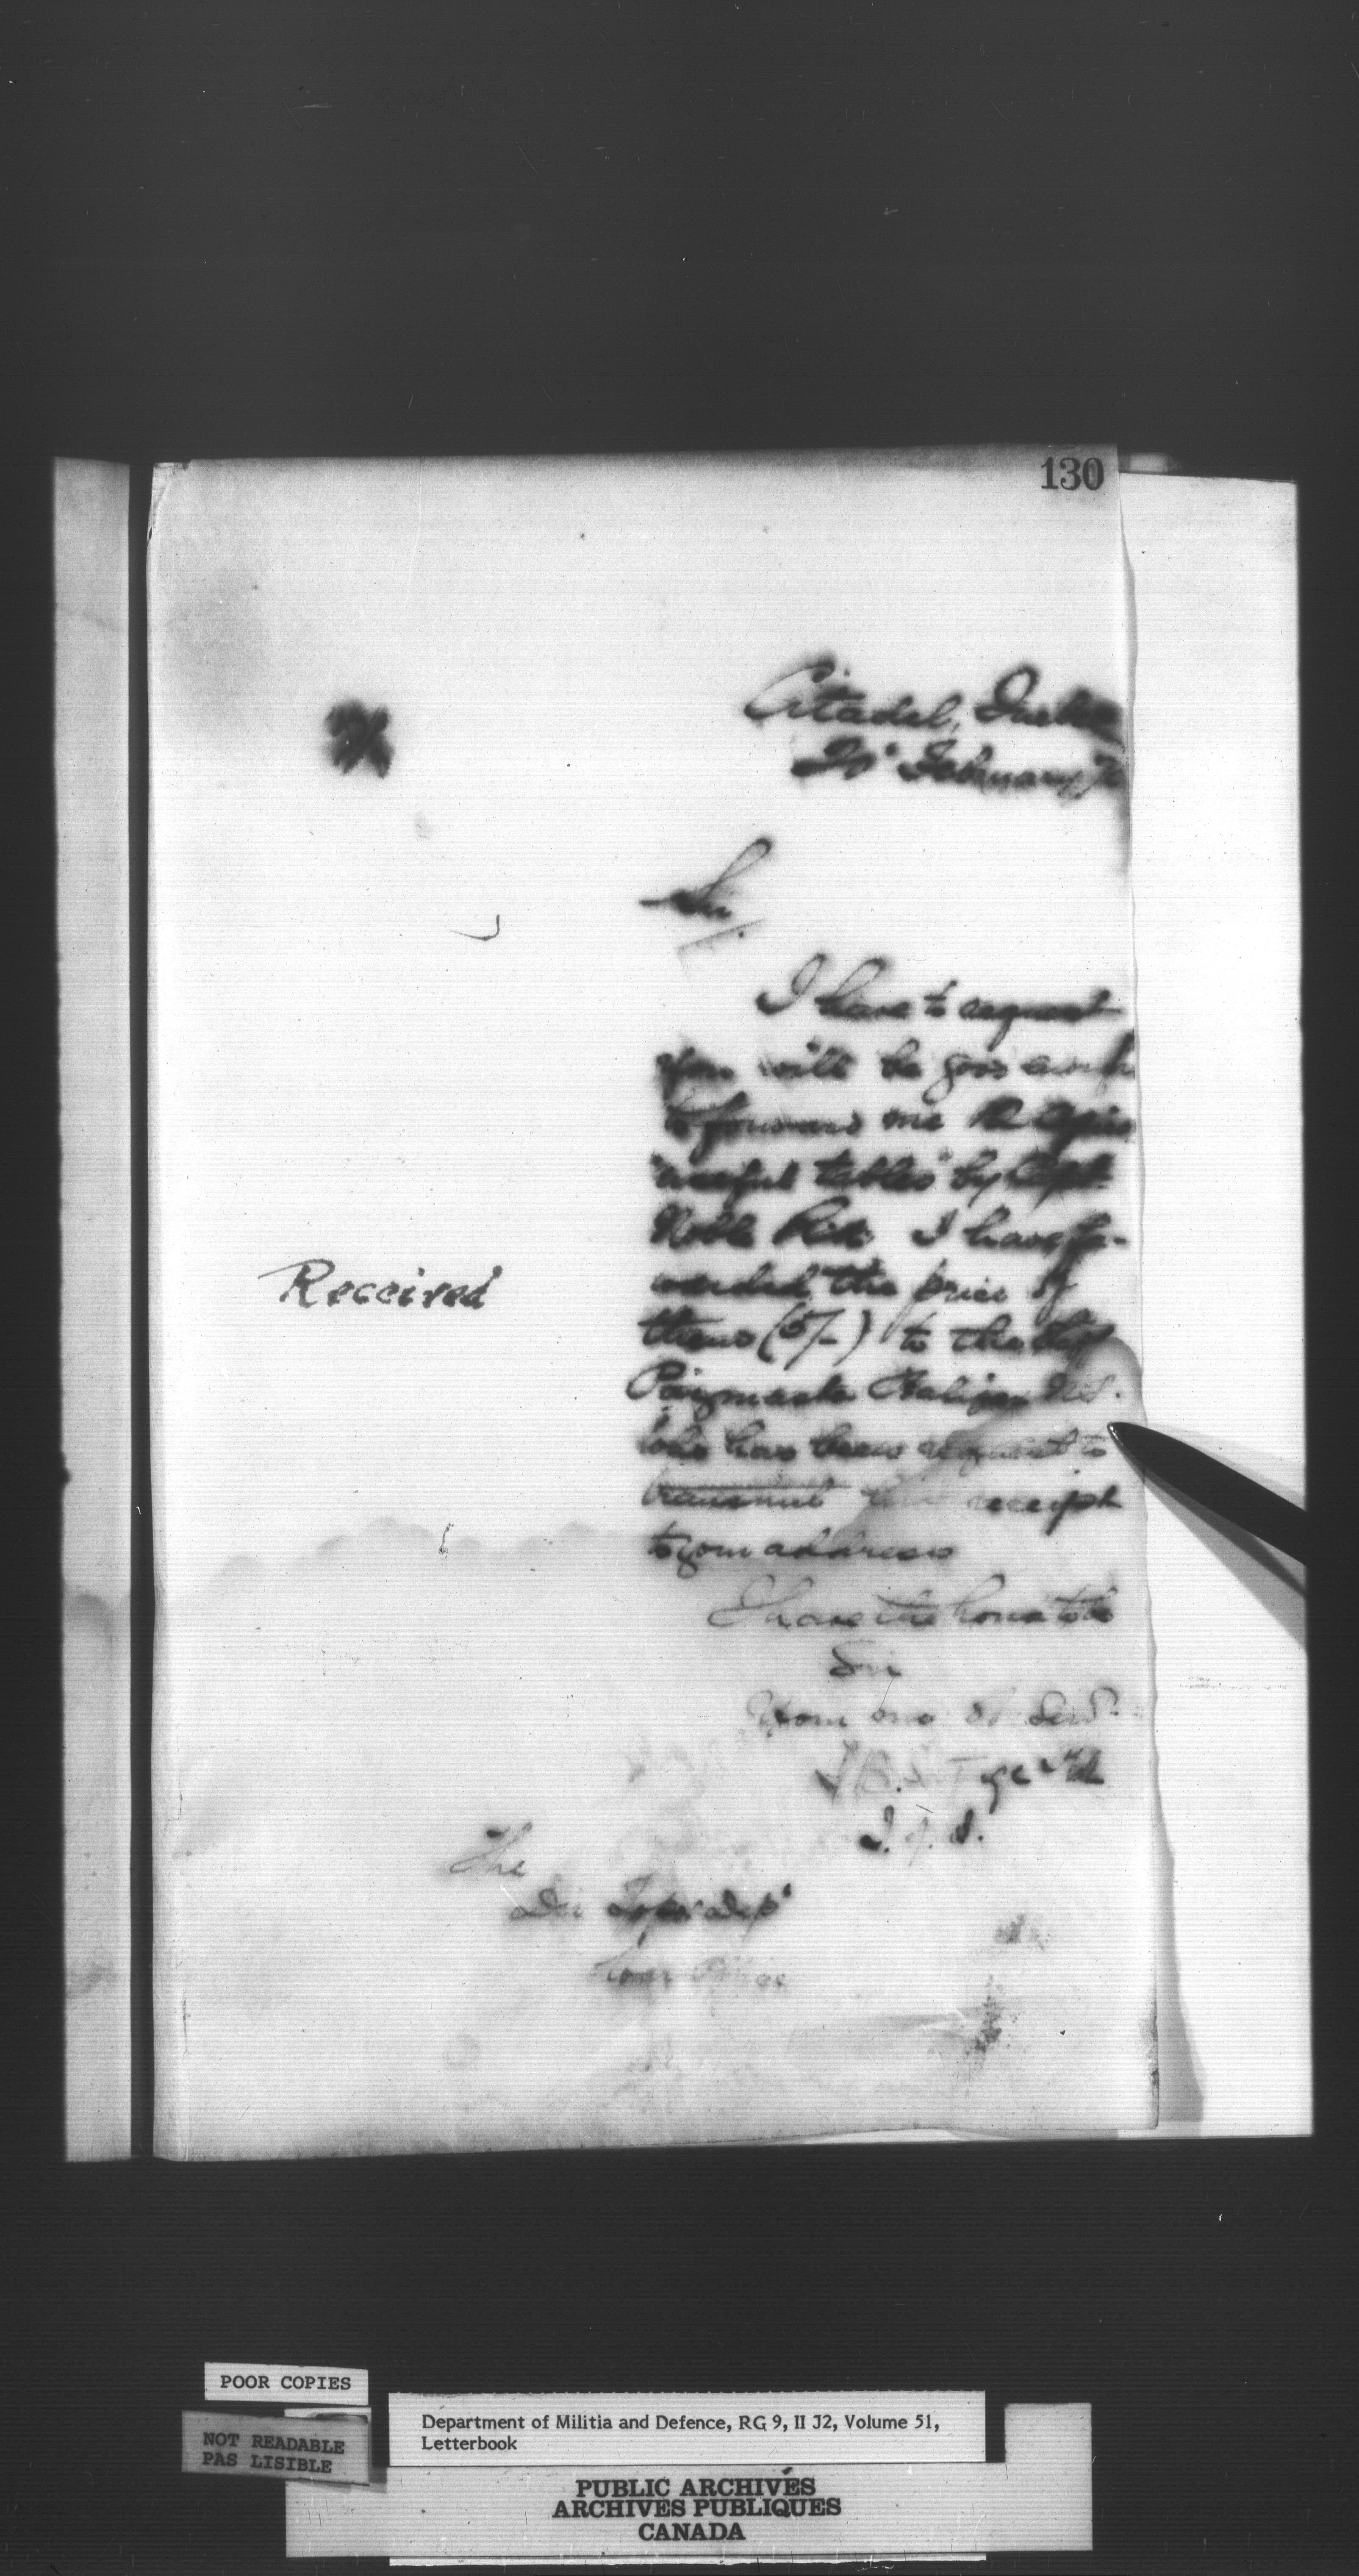 130
Citadel, Quebec
February
Sir.
I have to request
you will be good enough
to forward me 12 copies
"useful tables" by Capt
Noble I have for-
warded the price of
them (5/-) to the
Paymaster Halifax N.S.
who has been request to
transmit receipt
to your address
Received
I have the honor to be
Sir
Your
I. of A.
The
Dir Topo Dep
War Office
POOR COPIES
NOT READABLE
PAS LISIBLE
Department of Militia and Defence, RG 9, II J2, Volume 51,
Letterbook
PUBLIC ARCHIVES
ARCHIVES PUBLIQUES
CANADA